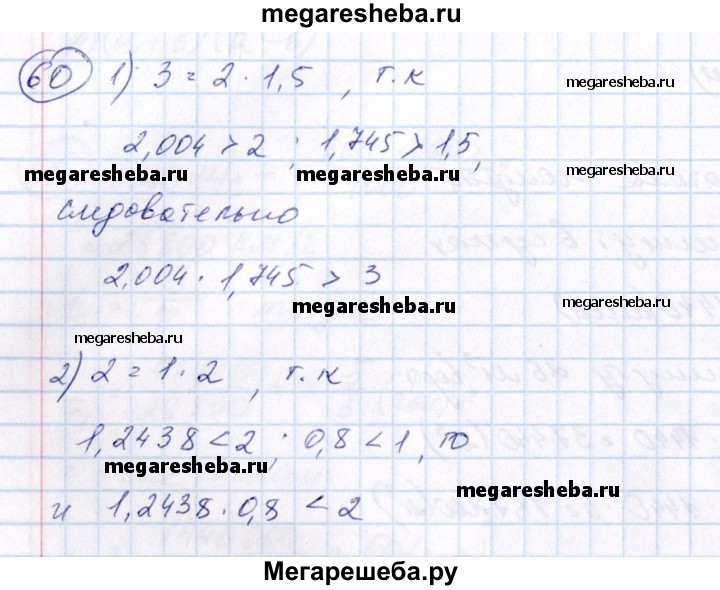 megaresheba.ru
60 1) 3 = 2 · 1,5 , т.к
megaresheba.ru
2,004 > 2 ; 1,745 > 1,5,
megaresheba.ru megaresheba.ru megaresheba.ru
следовательно
2,004 · 1,745 > 3
megaresheba.ru megaresheba.ru
megaresheba.ru
2) 2 = 1 · 2 , т.к
1,2438 < 2 ; 0,8 < 1 , то
megaresheba.ru
и 1,2438 · 0,8 < 2
megaresheba.ru
Мегарешеба.ру